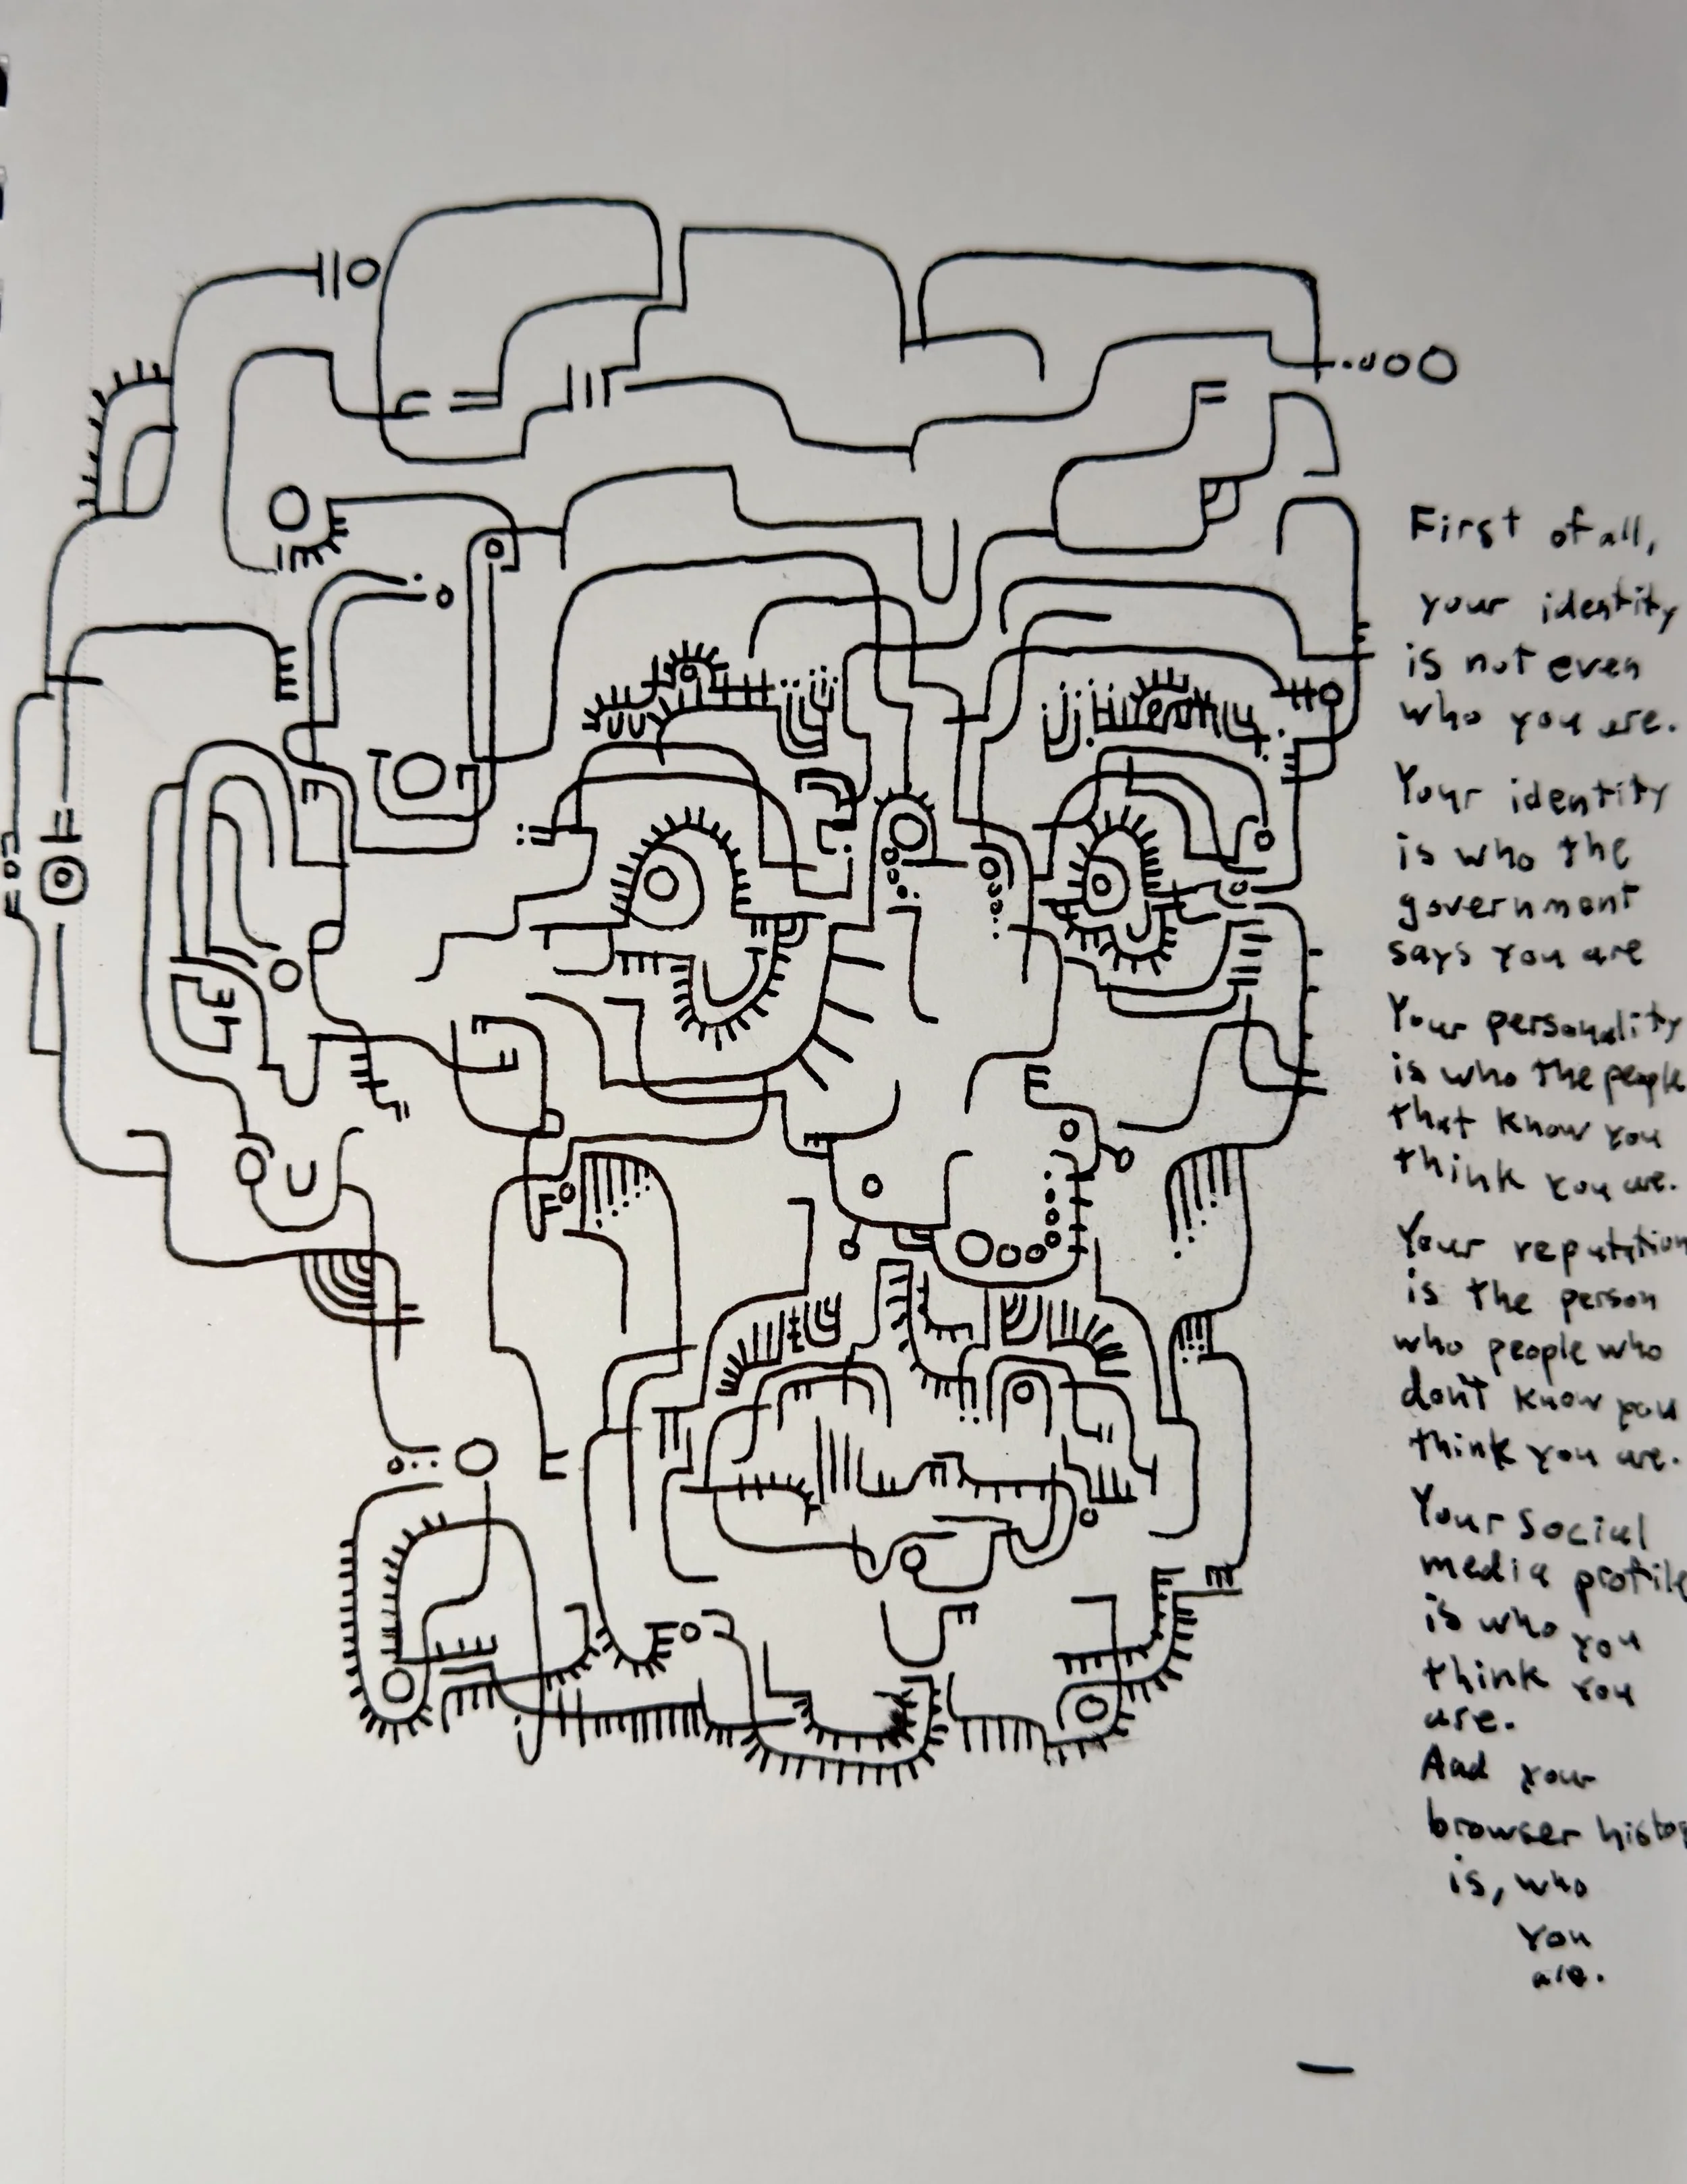 First of all,
your identity
is not even
who you are.
Your identity
is who the
government
says you are
Your personality
is who the people
that know you
think you are.
Your reputation
is the person
who people who
don't know you
think you are.
Your social
media profile
is who you
think you
are.
And your
browser histor
is, who
you
are.